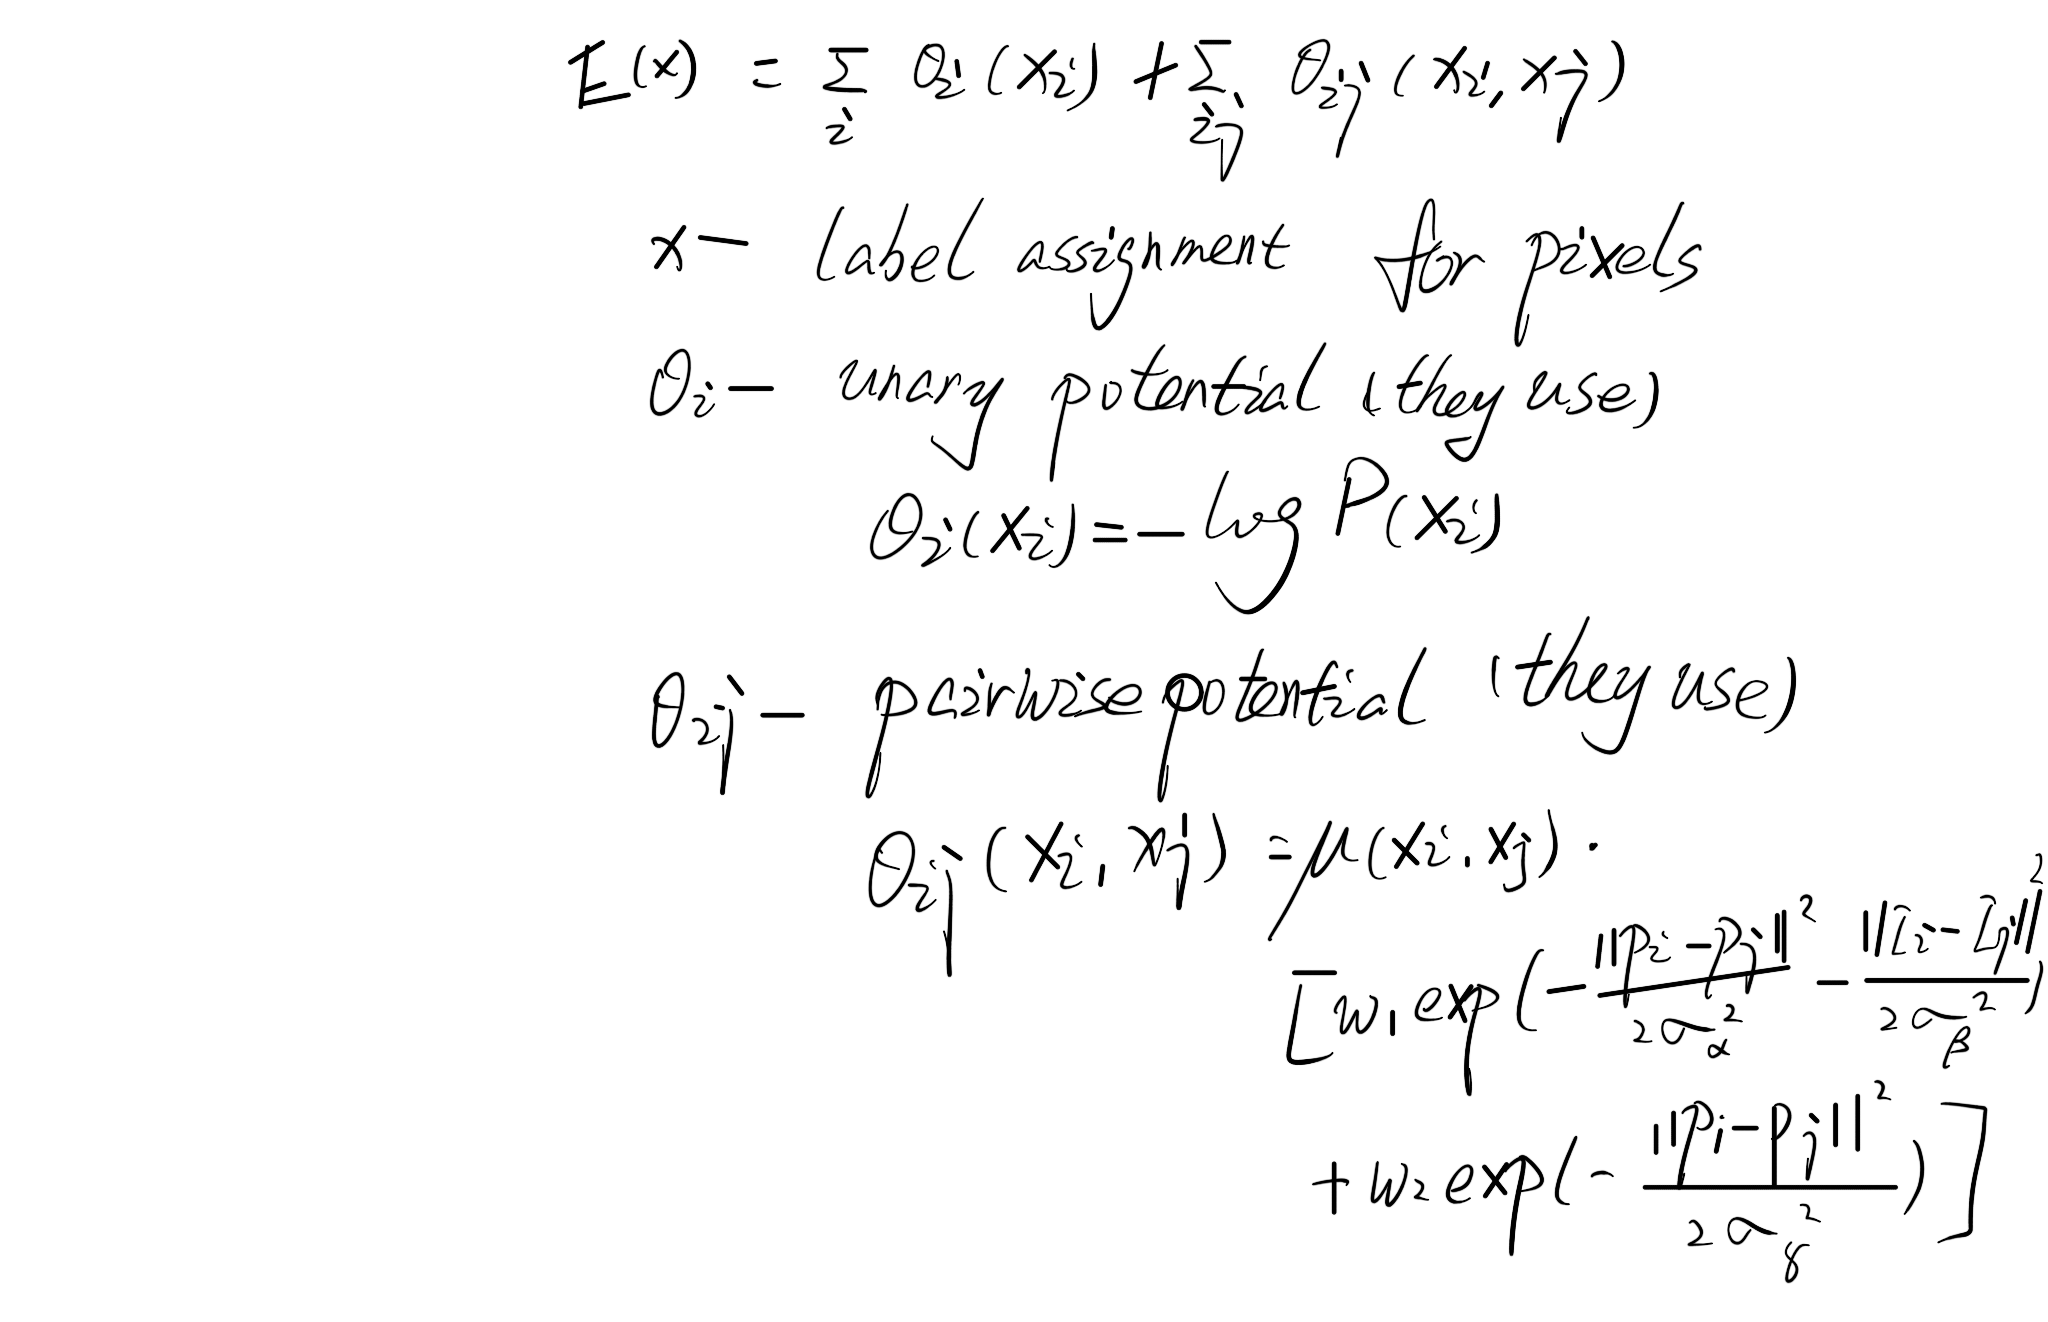 E(x) = Σ_i θ_i(x_i) + Σ_ij θ_ij(x_i, x_j)
x — label assignment for pixels
θ_i — unary potential (they use)
θ_i(x_i) = - log P(x_i)
θ_ij — pairwise potential (they use)
θ_ij(x_i, x_j) = μ(x_i, x_j) ·
[w_1 exp(- ||p_i - p_j||^2 / 2σ_α^2 - ||I_i - I_j||^2 / 2σ_β^2)
+ w_2 exp(- ||p_i - p_j||^2 / 2σ_γ^2)]